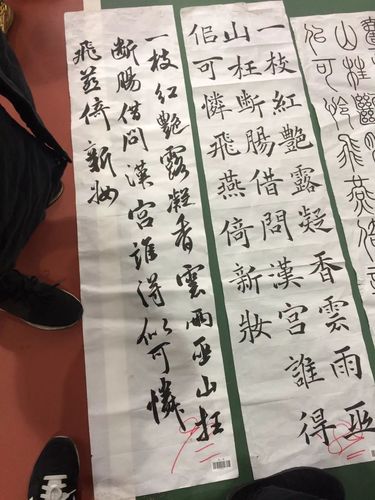 一枝紅艷露凝香雲雨巫山枉
斷腸借問漢宮誰得似可憐
飛燕倚新妝
一枝紅艷露凝香雲雨巫
山枉斷腸借問漢宮誰得
佀可憐飛燕倚新妝
山枉斷
佀可憐飛燕倚